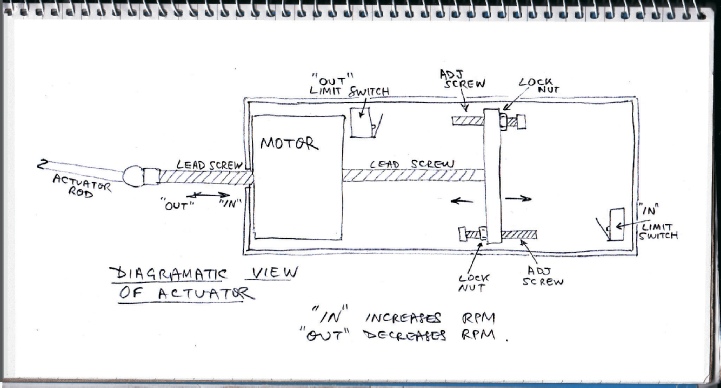 "OUT"
LIMIT SWITCH
ADJ
SCREW
LOCK
NUT
MOTOR
LEAD SCREW
LEAD SCREW
ACTUATOR
ROD
"OUT" "IN"
"IN"
LIMIT
SWITCH
LOCK
NUT
ADJ
SCREW
DIAGRAMATIC VIEW
OF ACTUATOR
"IN" INCREASES RPM
"OUT" DECREASES RPM.